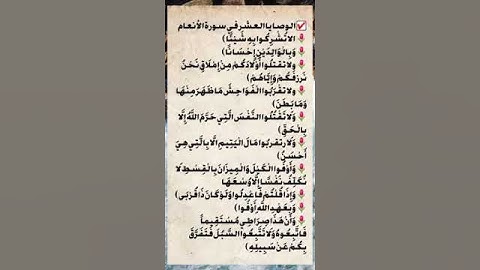 الوصايا العشر في سورة الأنعام
الا تُشْرِكُوا بِهِ شَيْئًا)
وَبِالْوَالِدَيْنِ إِحْسَانًا)
ولا تقتلوا أَوْلَادَكُمْ مِنْ إِمْلَاقٍ نَحْنُ
نَرْزُقُكُمْ وَإِيَّاهُمْ)
ولا تَقْرَبُوا الْفَوَاحِشَ مَا ظَهَرَ مِنْهَا
وَمَا بَطَنَ)
وَلَا تَقْتُلُوا النَّفْسَ الَّتِي حَرَّمَ اللَّهُ إِلَّا
بِالْحَقِّ)
وَلَا تقربوا مَالَ الْيَتِيمِ الَّا بِالَّتِي هِيَ
أَحْسَنُ)
وَأَوْفُوا الْكَيْلَ وَالْمِيزَانَ بِالْقِسْطِ لَا
نُكَلِّفُ نَفْسًا إِلَّا وُسْعَهَا
وَإِذَا قُلْتُمْ فَاعْدِلُوا وَلَوْ كَانَ ذَا قُرْبَى)
وَبِعَهْدِ اللَّهِ أَوْفُوا)
وَأَنَّ هَٰذَا صِرَاطِي مُسْتَقِيمًا
فَاتَّبِعُوهُ وَلَا تَتَّبِعُوا السُّبُلَ فَتَفَرَّقَ
بِكُمْ عَنْ سَبِيلِهِ)